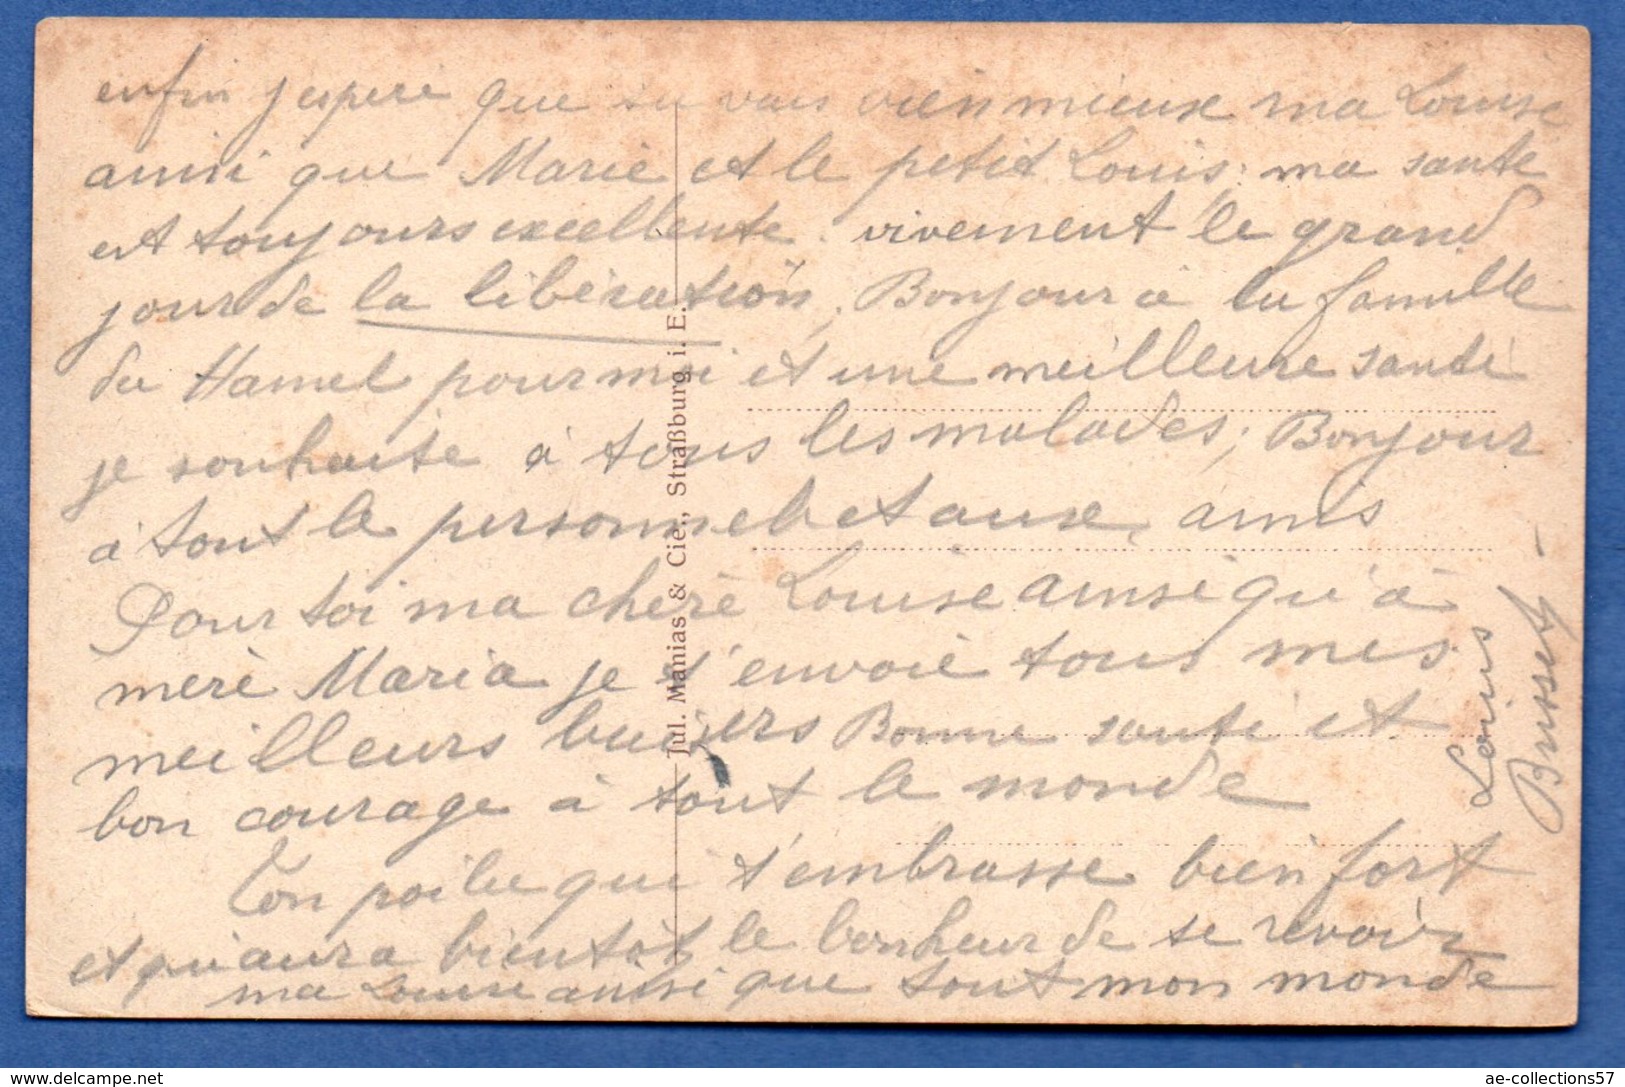 enfin j'espère que tu vais bien mieux ma Louise
ainsi que Marie et le petit Louis; ma santé
est toujours excellente. vivement le grand
jour de la libération; Bonjour à la famille
du Hamel pour moi et une meilleure santé
je souhaite à tous les malades; Bonjour
à tout le personnel et aux amis
Pour toi ma chère Louise ainsi qu'à
mère Maria je t'envoie tous mes
meilleurs baisers Bonne santé et
bon courage à tout le monde
Ton poilu qui t'embrasse bien fort
et qui aura bientôt le bonheur de se revoir
ma Louise ainsi que tout mon monde
Louis
Brusset
Jul. Manias & Cie., Straßburg i. E.
ae-collections57